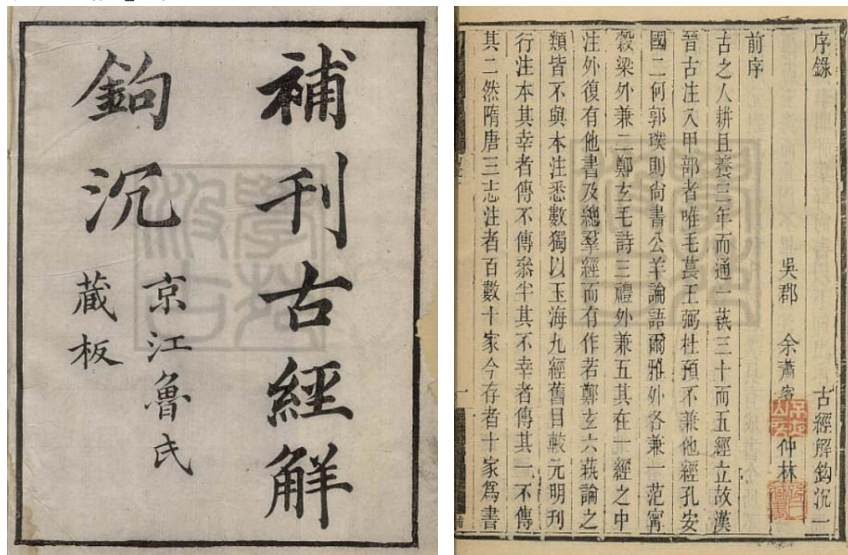 補刊古經解
鉤沉
京江魯氏
藏板
序錄
古經解鉤沉一
吳郡 余蕭客 仲林
前序
古之人耕且養三年而通一蓺三十而五經立故漢
晉古注入甲部者唯毛萇王弼杜預不兼他經孔安
國二何郭璞則尚書公羊論語爾雅外各兼一范甯
穀梁外兼二鄭玄毛詩三禮外兼五其在一經之中
注外復有他書及總羣經而有作若鄭玄六蓺論之
類皆不與本注悉數獨以玉海九經舊目較元明刊
行注本其幸者傳不傳叅半其不幸者傳其一不傳
其二然隋唐三志注者百數十家今存者十家爲書